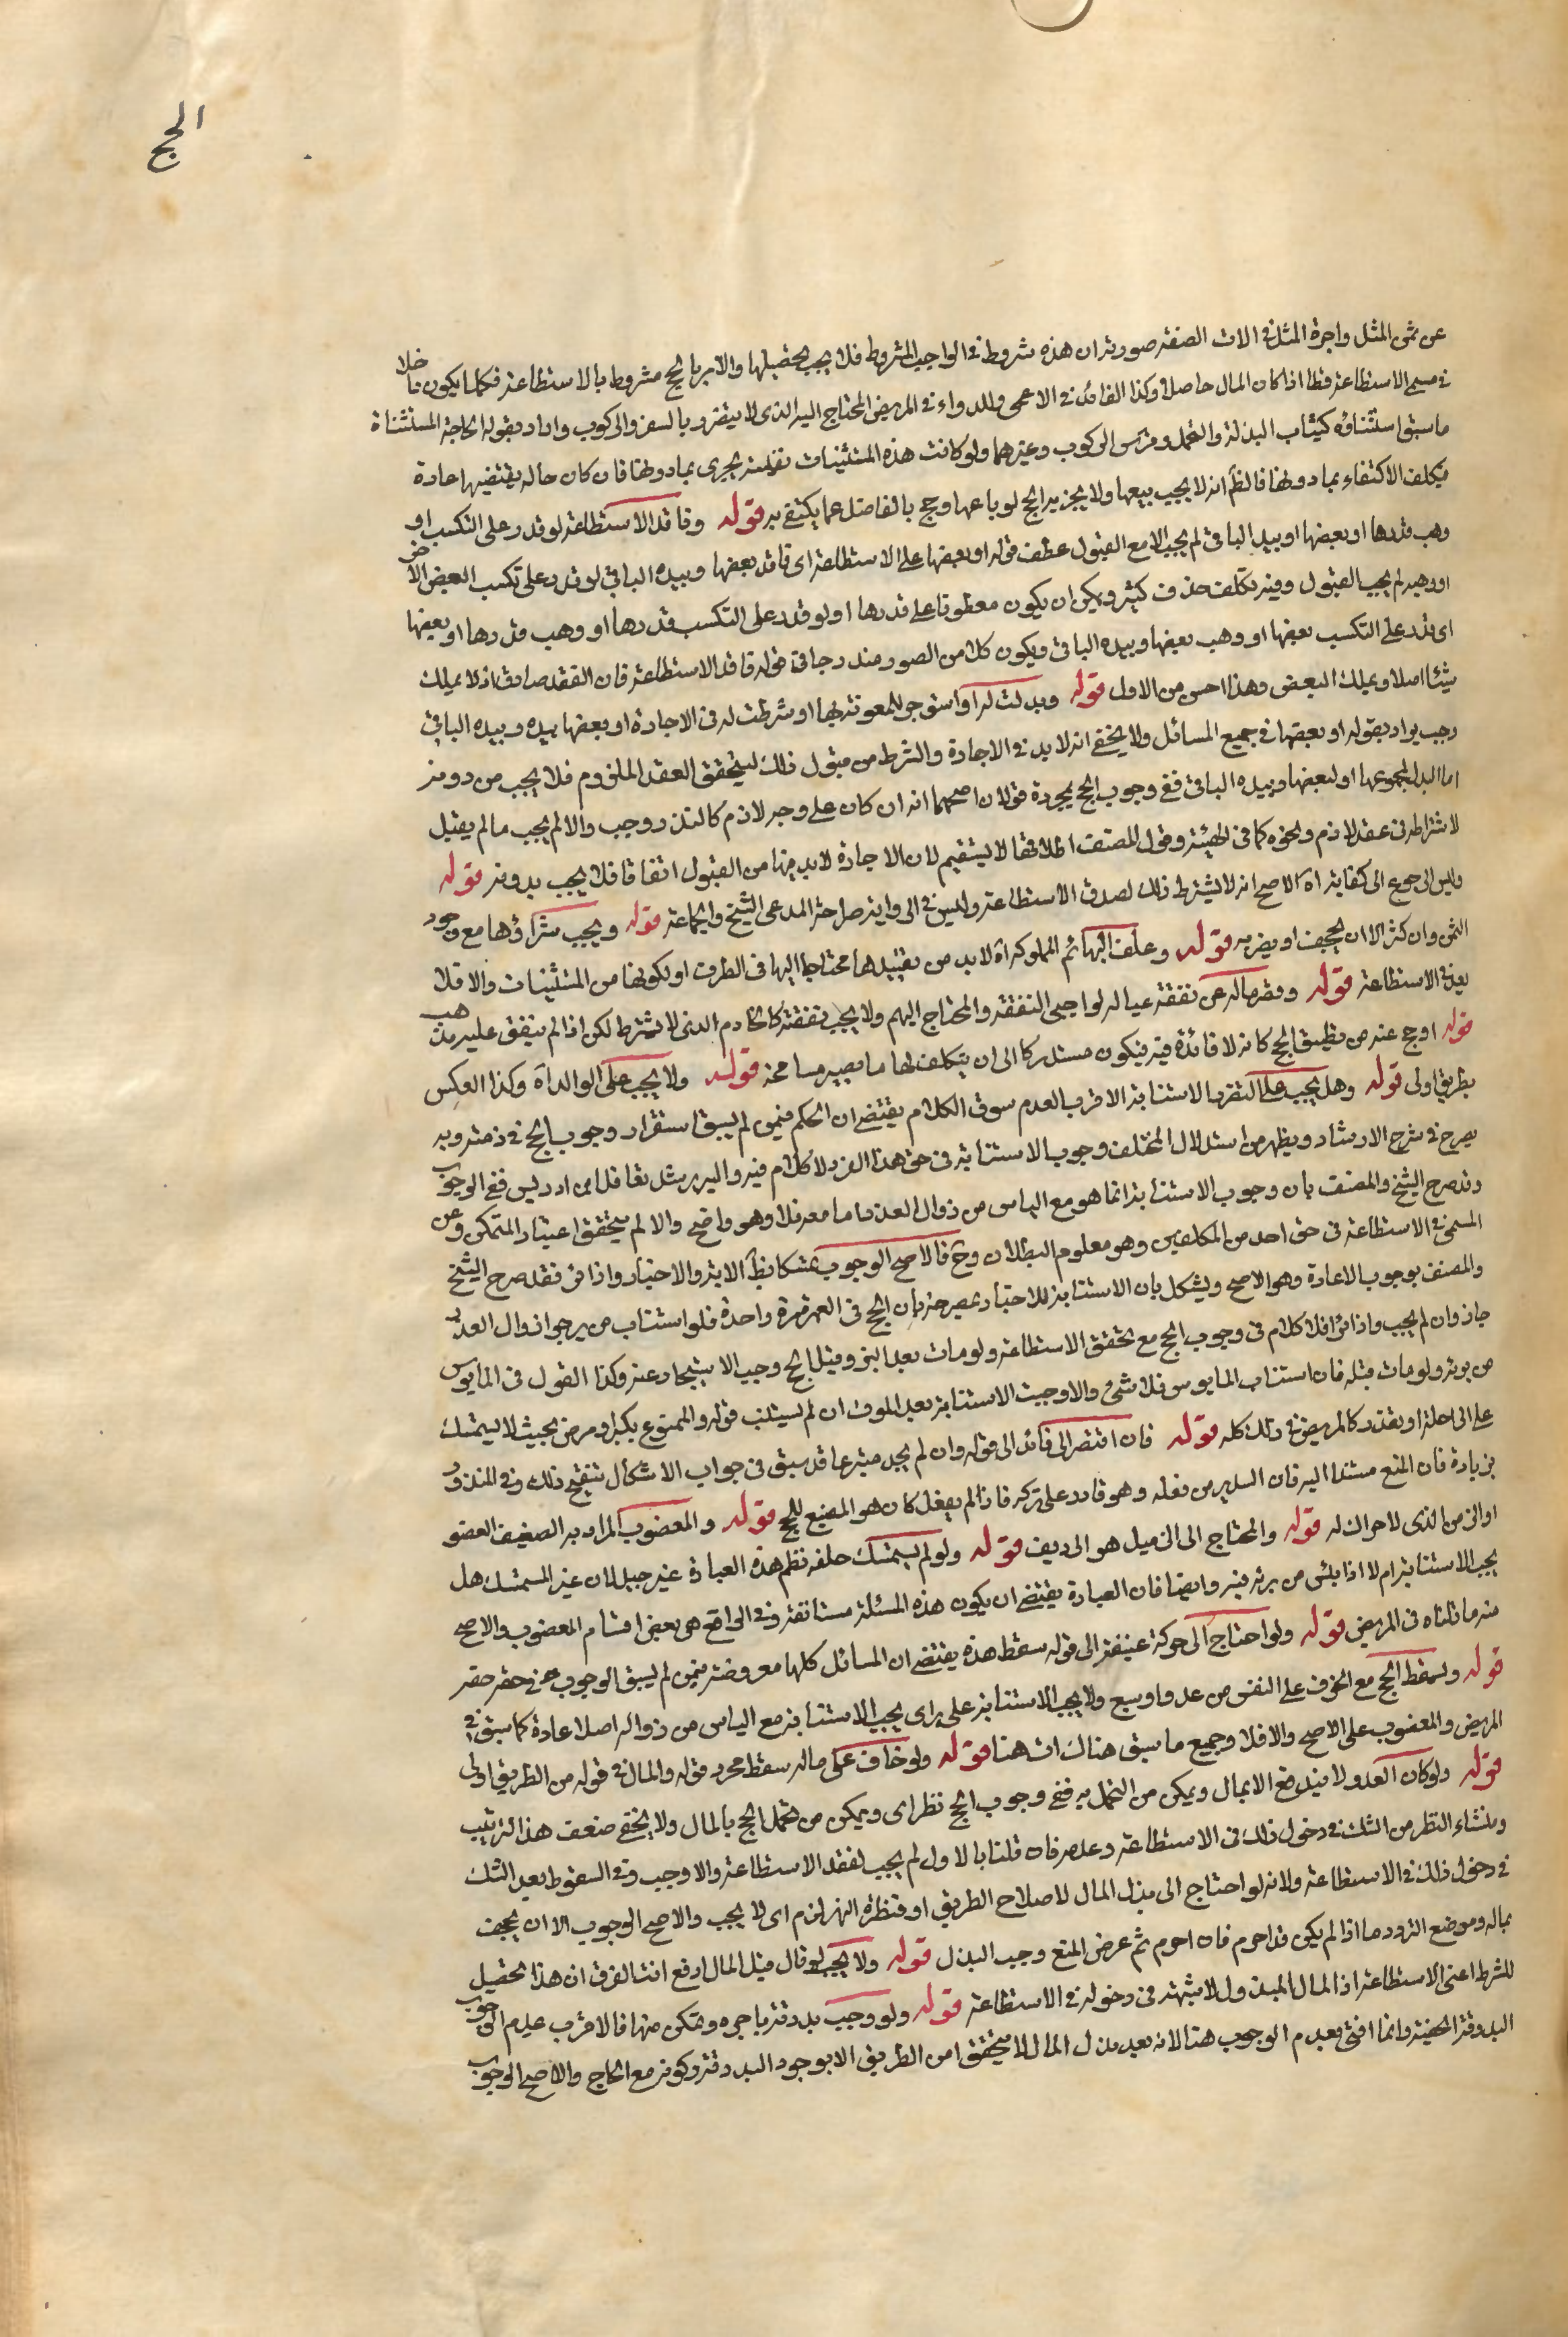 الحج
عن ثمن المثل واجرة المثل في الات الصفة صورته ان هذه شروط في الواجب المشروط فلا يجب تحصيلها والامر بالحج مشروط بالاستطاعة فكلما يكون داخلا
في مسمى الاستطاعة فظا اذا كان المال حاصلا وكذا القائد في الاعمى والدواء في المريض المحتاج اليه الذي لا يتضرر بالسفر والركوب واراد بقوله الحاجة المستثناة
ما سبق استثناؤه كثياب البذلة والتجمل وفرس الركوب وغيرهما ولو كانت هذه المستثنيات نفيسة يجزي بما دونها فان كان حاله يقتضيها عادة
فيكلف الاكتفاء بما دونها فالظ انه لا يجب بيعها ولا يجزيه الحج لو باعها وحج بالفاضل عما يكتفي به قوله وفاقد الاستطاعة لو قدر على التكسب او
وهب قدرها او بعضها او بيده الباقي لم يجب الا مع القبول عطف قوله او بعضها على الاستطاعة اي فاقد بعضها وبيده الباقي لو قدر على تكسب البعض الاخر
او وهبه لم يجب القبول وفيه تكلف حذف كثير ويمكن ان يكون معطوفا على قدرها او لو قدر على التكسب قدرها او وهب قدرها او بعضها
اي قدر على التكسب بعضها او وهب بعضها وبيده الباقي ويكون كل من الصور مندرجا في قوله فاقد الاستطاعة فان الفقد صادق اذ لا يملك
شيئا اصلا ويملك البعض وهذا احسن من الاول قوله وبذلت له او استوجر للمعونة بها او شرطت له في الاجارة او بعضها بيده وبيده الباقي
وجب يراد بقوله او بعضها في جميع المسائل ولا يخفى انه لا بد في الاجارة والشرط من قبول ذلك ليتحقق العقد الملزوم فلا يجب من دونه
اما البذل لمجموعها او لبعضها وبيده الباقي ففي وجوب الحج بمجرده قولان اصحهما انه ان كان على وجه لازم كالنذر وجب والا لم يجب ما لم يقبل
لاشتراطه في عقد لازم ونحوه كما في الهبة وقول المصنف اطلاقها لا يستقيم لان الاجارة لا بد فيها من القبول اتفاقا فلا يجب بدونه قوله
وليس الرجوع الى كفاية اه الاصح انه لا يشترط ذلك لصدق الاستطاعة وليس في الرواية صراحة المدعى الشيخ والجماعة قوله ويجب شراؤها مع وجود
الثمن وان كثر الا ان يجحف او يضر به قوله وعلف البهائم المملوكة اه لا بد من تقييدها محتاجا اليها في الطريق او بكونها من المستثنيات والا فلا
بعد في الاستطاعة قوله وقصر ماله عن نفقة عياله لواجبي النفقة والمحتاج اليهم ولا يجب نفقته كالخادم الذي لا يشترط لكن اذا لم ينفق عليه يذهب
قوله او حج عنه من يطيق الحج كانه لا فائدة فيه فيكون مستدركا الى ان يتكلف لها ما يصير مسامحة قوله ولا يجب على الوالد اه وكذا العكس
بطريق اولى قوله وهل يجب على المتضرر الاستنابة الاقرب العدم سوق الكلام يقتضي ان الحكم فيمن لم يسبق استقرار وجوب الحج في ذمته وبه
يصرح في شرح الارشاد ويظهر من استدلال المختلف وجوب الاستنابة في حق هذا الفرد لا كلام فيه واليه يرشد تغافل ابن ادريس ففي الوجوب
وقد صرح الشيخ والمصنف بان وجوب الاستنابة انما هو مع الياس من زوال العذر اما معه فلا وهو واضح والا لم يتحقق اعتبار المتمكن وعن
المسمى في الاستطاعة في حق احد من المكلفين وهو معلوم البطلان وح فالاصح الوجوب تمسكا بظ الاية والاخبار واذا برئ فقد صرح الشيخ
والمصنف بوجوب الاعادة وهو الاصح ويشكل بان الاستنابة للاخبار مصرحة بان الحج في العمر مرة واحدة فلو استناب من يرجو زوال العذر
جاز وان لم يجب واذا برئ فلا كلام في وجوب الحج مع تحقق الاستطاعة ولو مات بعد البرء وقبل الحج وجب الاستيجار عنه وكذا القول في المايوس
من برئه ولو مات قبله فان استناب المايوس فلا شئ والا وجبت الاستنابة بعد الموت ان لم يستنب قوله والممنوع بكبر او مرض بحيث لا يستمسك
على الراحلة او بعدو كالمريض في ذلك كله قوله فان افتقر الى قائد الى قوله وان لم يجد متبرعا قد سبق في جواب الاشكال تنقيح ذلك وفي المنذور
بزيادة فان المنع مستندا اليه فان السبب من فعله وهو قادر على تركه فاذا لم يفعل كان هو المضيع للحج قوله والمعضوب المراد به الضعيف العضو
او الزمن الذي لا حراك له قوله والمحتاج الى الزميل هو الرديف قوله ولو لم يستمسك خلفه نظم هذه العبارة غير جيد لان غير المستمسك هل
يجب الاستنابة ام لا اذا يئس من برئه فيه وايضا فان العبارة يقتضي ان يكون هذه المسئلة مستانفة وفي الواقع هي بعض اقسام المعضوب والاصح
منه ما قلناه في المريض قوله ولو احتاج الى حركة عنيفة الى قوله سقط هذه يقتضي ان المسائل كلها مفروضة فيمن لم يسبق الوجوب في حقه
قوله ويسقط الحج مع الخوف على النفس من عدو او سبع ولا يجب الاستنابة على راي يجب الاستنابة مع الياس من زواله اصلا عادة كما سبق في
المريض والمعضوب على الاصح والا فلا وجميع ما سبق هناك ات هنا قوله ولو خاف على ماله سقط مجرد قوله والمال في قوله من الطريق اولى
قوله ولو كان العدو لا يندفع الا بمال ويمكن من التحمل به ففي وجوب الحج نظر اي ويمكن من تحمل الحج بالمال ولا يخفى ضعف هذا الترتيب
ومنشاء النظر من الشك في دخول ذلك في الاستطاعة وعدمه فان قلنا بالاول لم يجب لفقد الاستطاعة والا وجب وفي السقوط بعد الشك
في دخول ذلك في الاستطاعة ولانه لو احتاج الى بذل المال لاصلاح الطريق او قنطرة النهر لزم اي لا يجب والاصح الوجوب الا ان يجحف
بماله وموضع التردد ما اذا لم يكن قد احرم فان احرم ثم عرض المنع وجب البذل قوله ولا يجب لو قال قبل المال ادفع انت الفرق ان هذا تحصيل
للشرط اعني الاستطاعة اذ المال المبذول لا شبهة في دخوله في الاستطاعة قوله ولو وجب بدرقة باجرة وتمكن منها فالاقرب عدم الوجوب
البدرقة الخفية وانما افتى بعدم الوجوب هنا لانه بعد بذل المال لا يتحقق امن الطريق الا بوجود البدرقة وكونه مع الحاج والاصح الوجوب